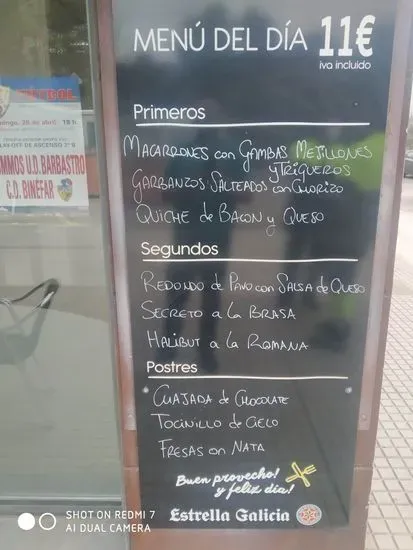 MENÚ DEL DÍA 11€
iva incluido
Primeros
MACARRONES con GAMBAS MEJILLONES
y TRIGUEROS
GARBANZOS SALTEADOS con CHORIZO
QUICHE de BACON y QUESO
Segundos
REDONDO de PAVO con SALSA de QUESO
SECRETO a LA BRASA
HALIBUT a LA ROMANA
Postres
CUAJADA de CHOCOLATE
TOCINILLO de CIELO
FRESAS con NATA
Buen provecho!
y feliz día!
Estrella Galicia
domingo, 28 de abril 18 h
PLAY-OFF DE ASCENSO 2ª B
U.D. BARBASTRO
C.D. BINEFAR
SHOT ON REDMI 7
AI DUAL CAMERA